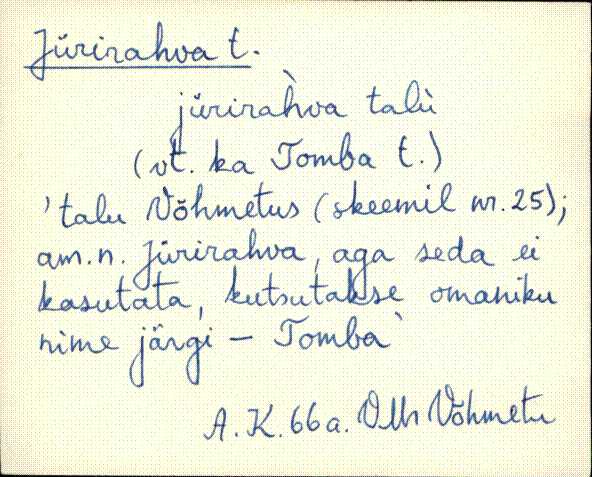 Jürirahva t.
jürirah̀va talù
(vt. ka Tomba t.)
'talu Võhmetus (skeemil nr. 25);
am.n. Jürirahva, aga seda ei
kasutata, kutsutakse omaniku
nime järgi – Tomba'
A. K. 66 a. VMr Võhmetu